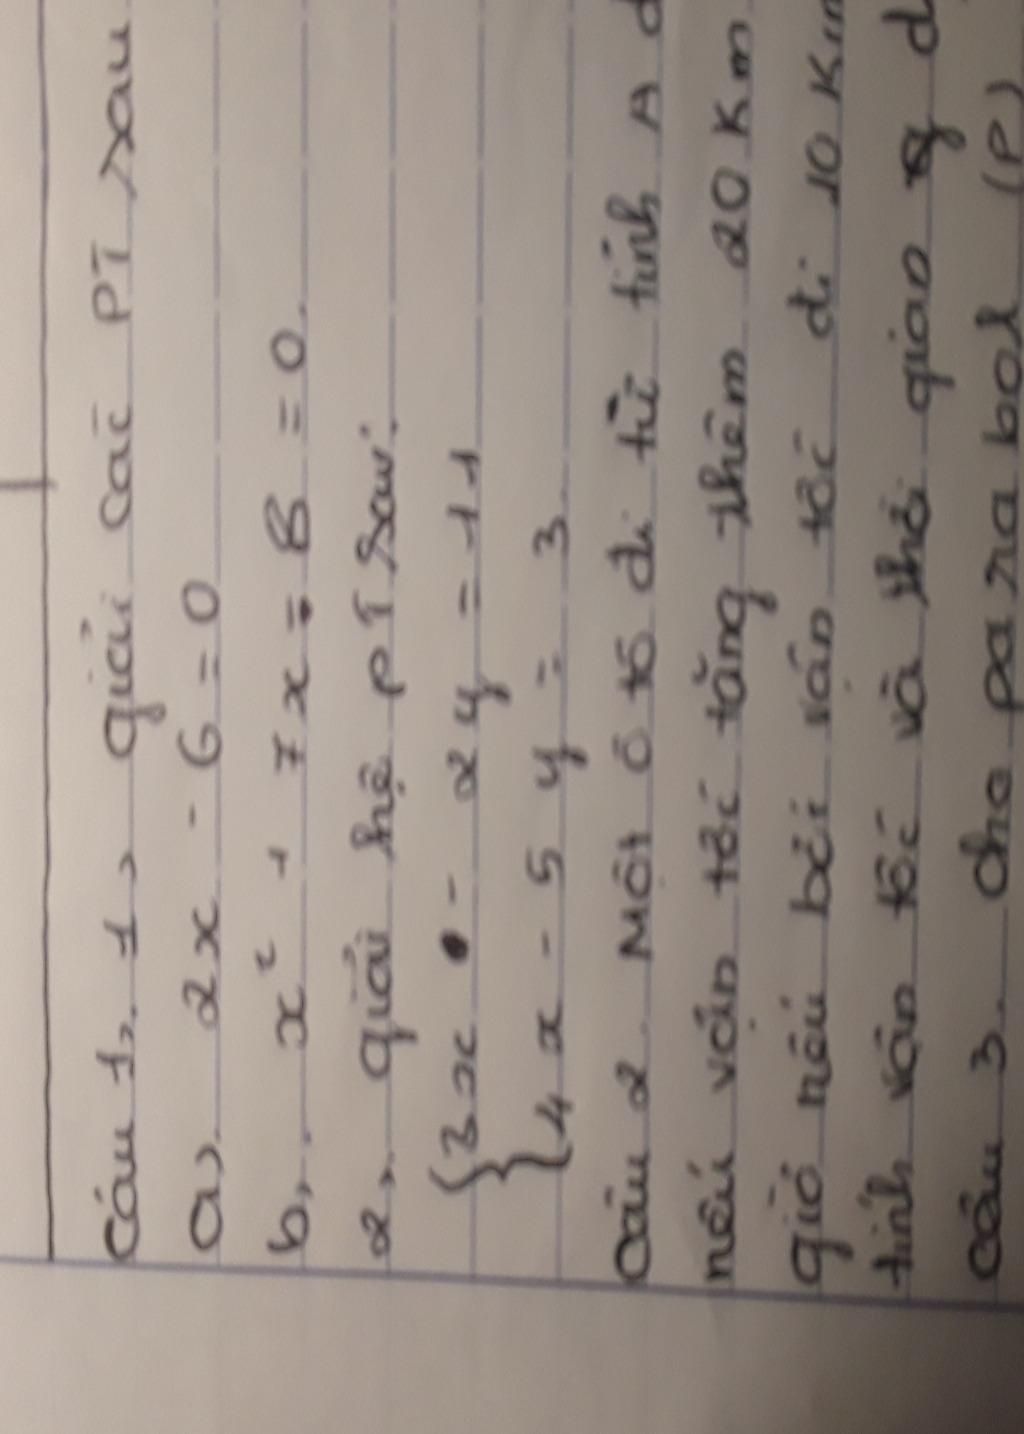 Câu 1, 1, giải các PT sau
a, 2x - 6 = 0
b, x² + 7x - 8 = 0.
2, giải hệ PT sau:
{3x - 2y = 11
{4x - 5y = 3
Câu 2 Một ô tô đi từ tỉnh A đ
nếu vận tốc tăng thêm 20 Km
giờ nếu bới vận tốc đi 10 Km
tính vận tốc và thời gian d
Câu 3. cho parabol (P)